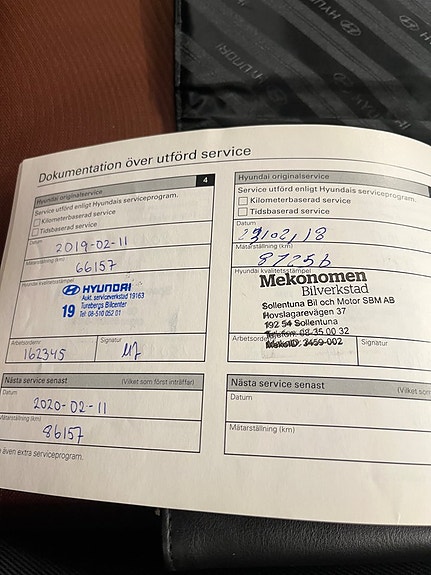 HYUNDAI
Dokumentation över utförd service
4
Hyundai originalservice
Service utförd enligt Hyundais serviceprogram.
Kilometerbaserad service
Tidsbaserad service
Datum
2019-02-11
Mätarställning (km)
66157
Hyundai kvalitetsstämpel
HYUNDAI
Aukt. serviceverkstad 19163
Turebergs Bilcenter
19
Tel: 08-510 052 01
Arbetsordernr.
Signatur
162345
Nästa service senast
(Vilket som först inträffar)
Datum
2020-02-11
Mätarställning (km)
86157
även extra serviceprogram.
Hyundai originalservice
Service utförd enligt Hyundais serviceprogram.
Kilometerbaserad service
Tidsbaserad service
Datum
Mätarställning (km)
87256
Hyundai kvalitetsstämpel
Mekonomen
Bilverkstad
Sollentuna Bil och Motor SBM AB
Hovslagarevägen 37
192 54 Sollentuna
Telefon: 08-35 00 32
MekoID: 3459-002
Signatur
Nästa service senast
(Vilket som
Datum
Mätarställning (km)